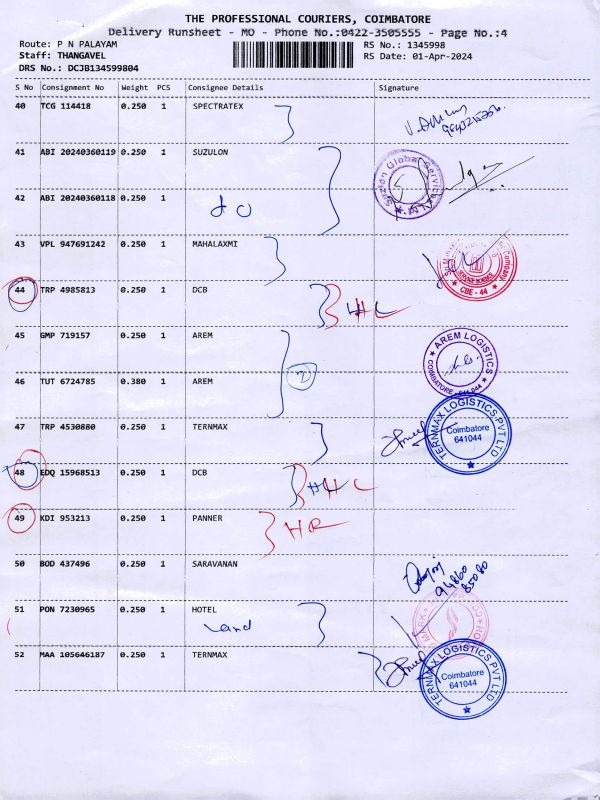 THE PROFESSIONAL COURIERS, COIMBATORE
Delivery Runsheet - MO - Phone No.:0422-3505555 - Page No.:4
Route: P N PALAYAM RS No.: 1345998
Staff: THANGAVEL RS Date: 01-Apr-2024
DRS No.: DCJB134599804
S No Consignment No Weight PCS Consignee Details Signature
40 TCG 114418 0.250 1 SPECTRATEX
41 ABI 20240360119 0.250 1 SUZULON
42 ABI 20240360118 0.250 1
do
43 VPL 947691242 0.250 1 MAHALAXMI
CBE - 44
44 TRP 4985813 0.250 1 DCB
45 GMP 719157 0.250 1 AREM
AREM LOGISTICS
COIMBATORE - 641 044
46 TUT 6724785 0.380 1 AREM
2
47 TRP 4530880 0.250 1 TERNMAX
TERNMAX LOGISTICS PVT LTD
Coimbatore
641044
48 EDQ 15968513 0.250 1 DCB
49 KDI 953213 0.250 1 PANNER
50 BOD 437496 0.250 1 SARAVANAN
94860
85080
51 PON 7230965 0.250 1 HOTEL
land
52 MAA 105646187 0.250 1 TERNMAX
TERNMAX LOGISTICS PVT LTD
Coimbatore
641044